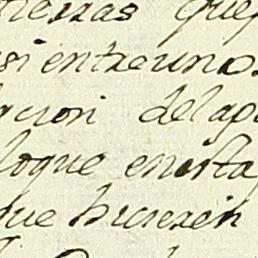 tierras que
si entreuno
acion delagu
loque enesta
que hicieren